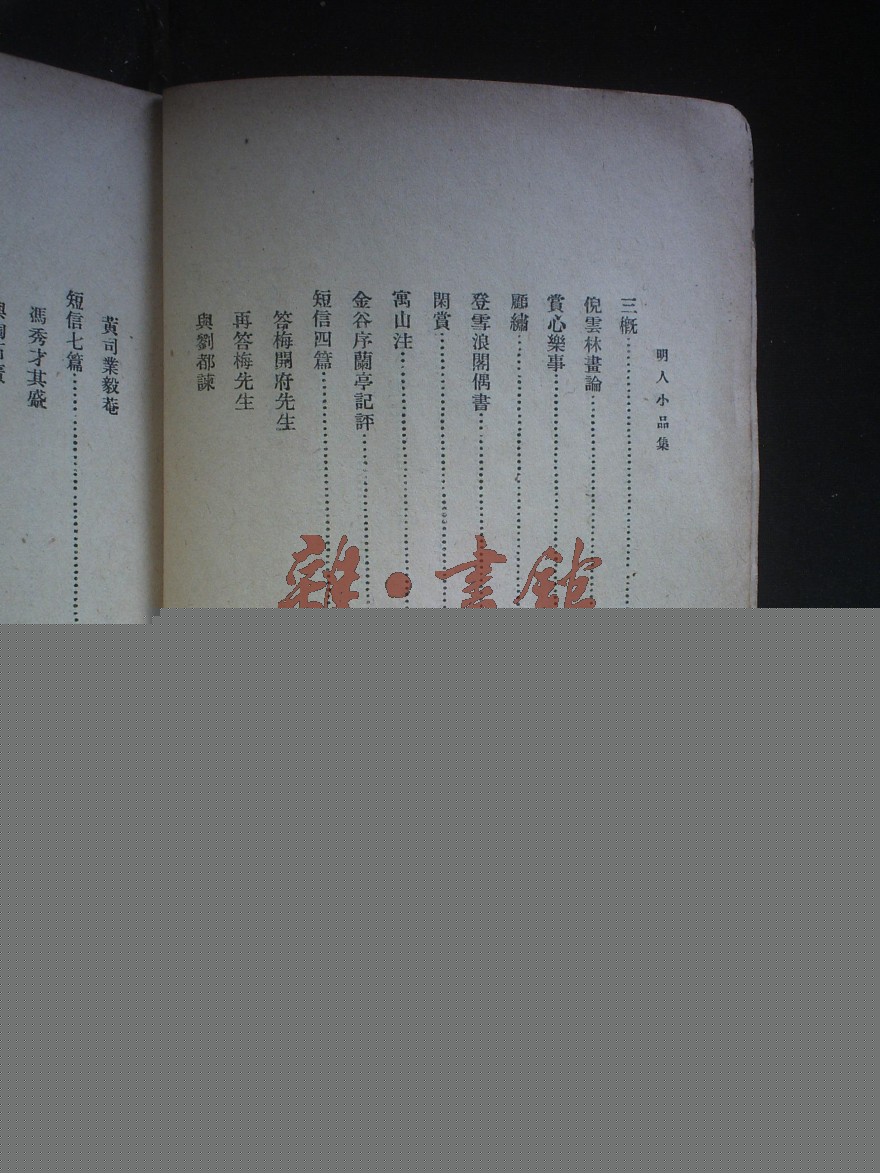 明人小品集
三概
倪雲林畫論
賞心樂事
顧繡
登雪浪閣偶書
閑賞
寓山注
金谷序蘭亭記評
短信四篇
答梅開府先生
再答梅先生
與劉都諫
黃司業毅菴
短信七篇
馮秀才其盛
雜·書館